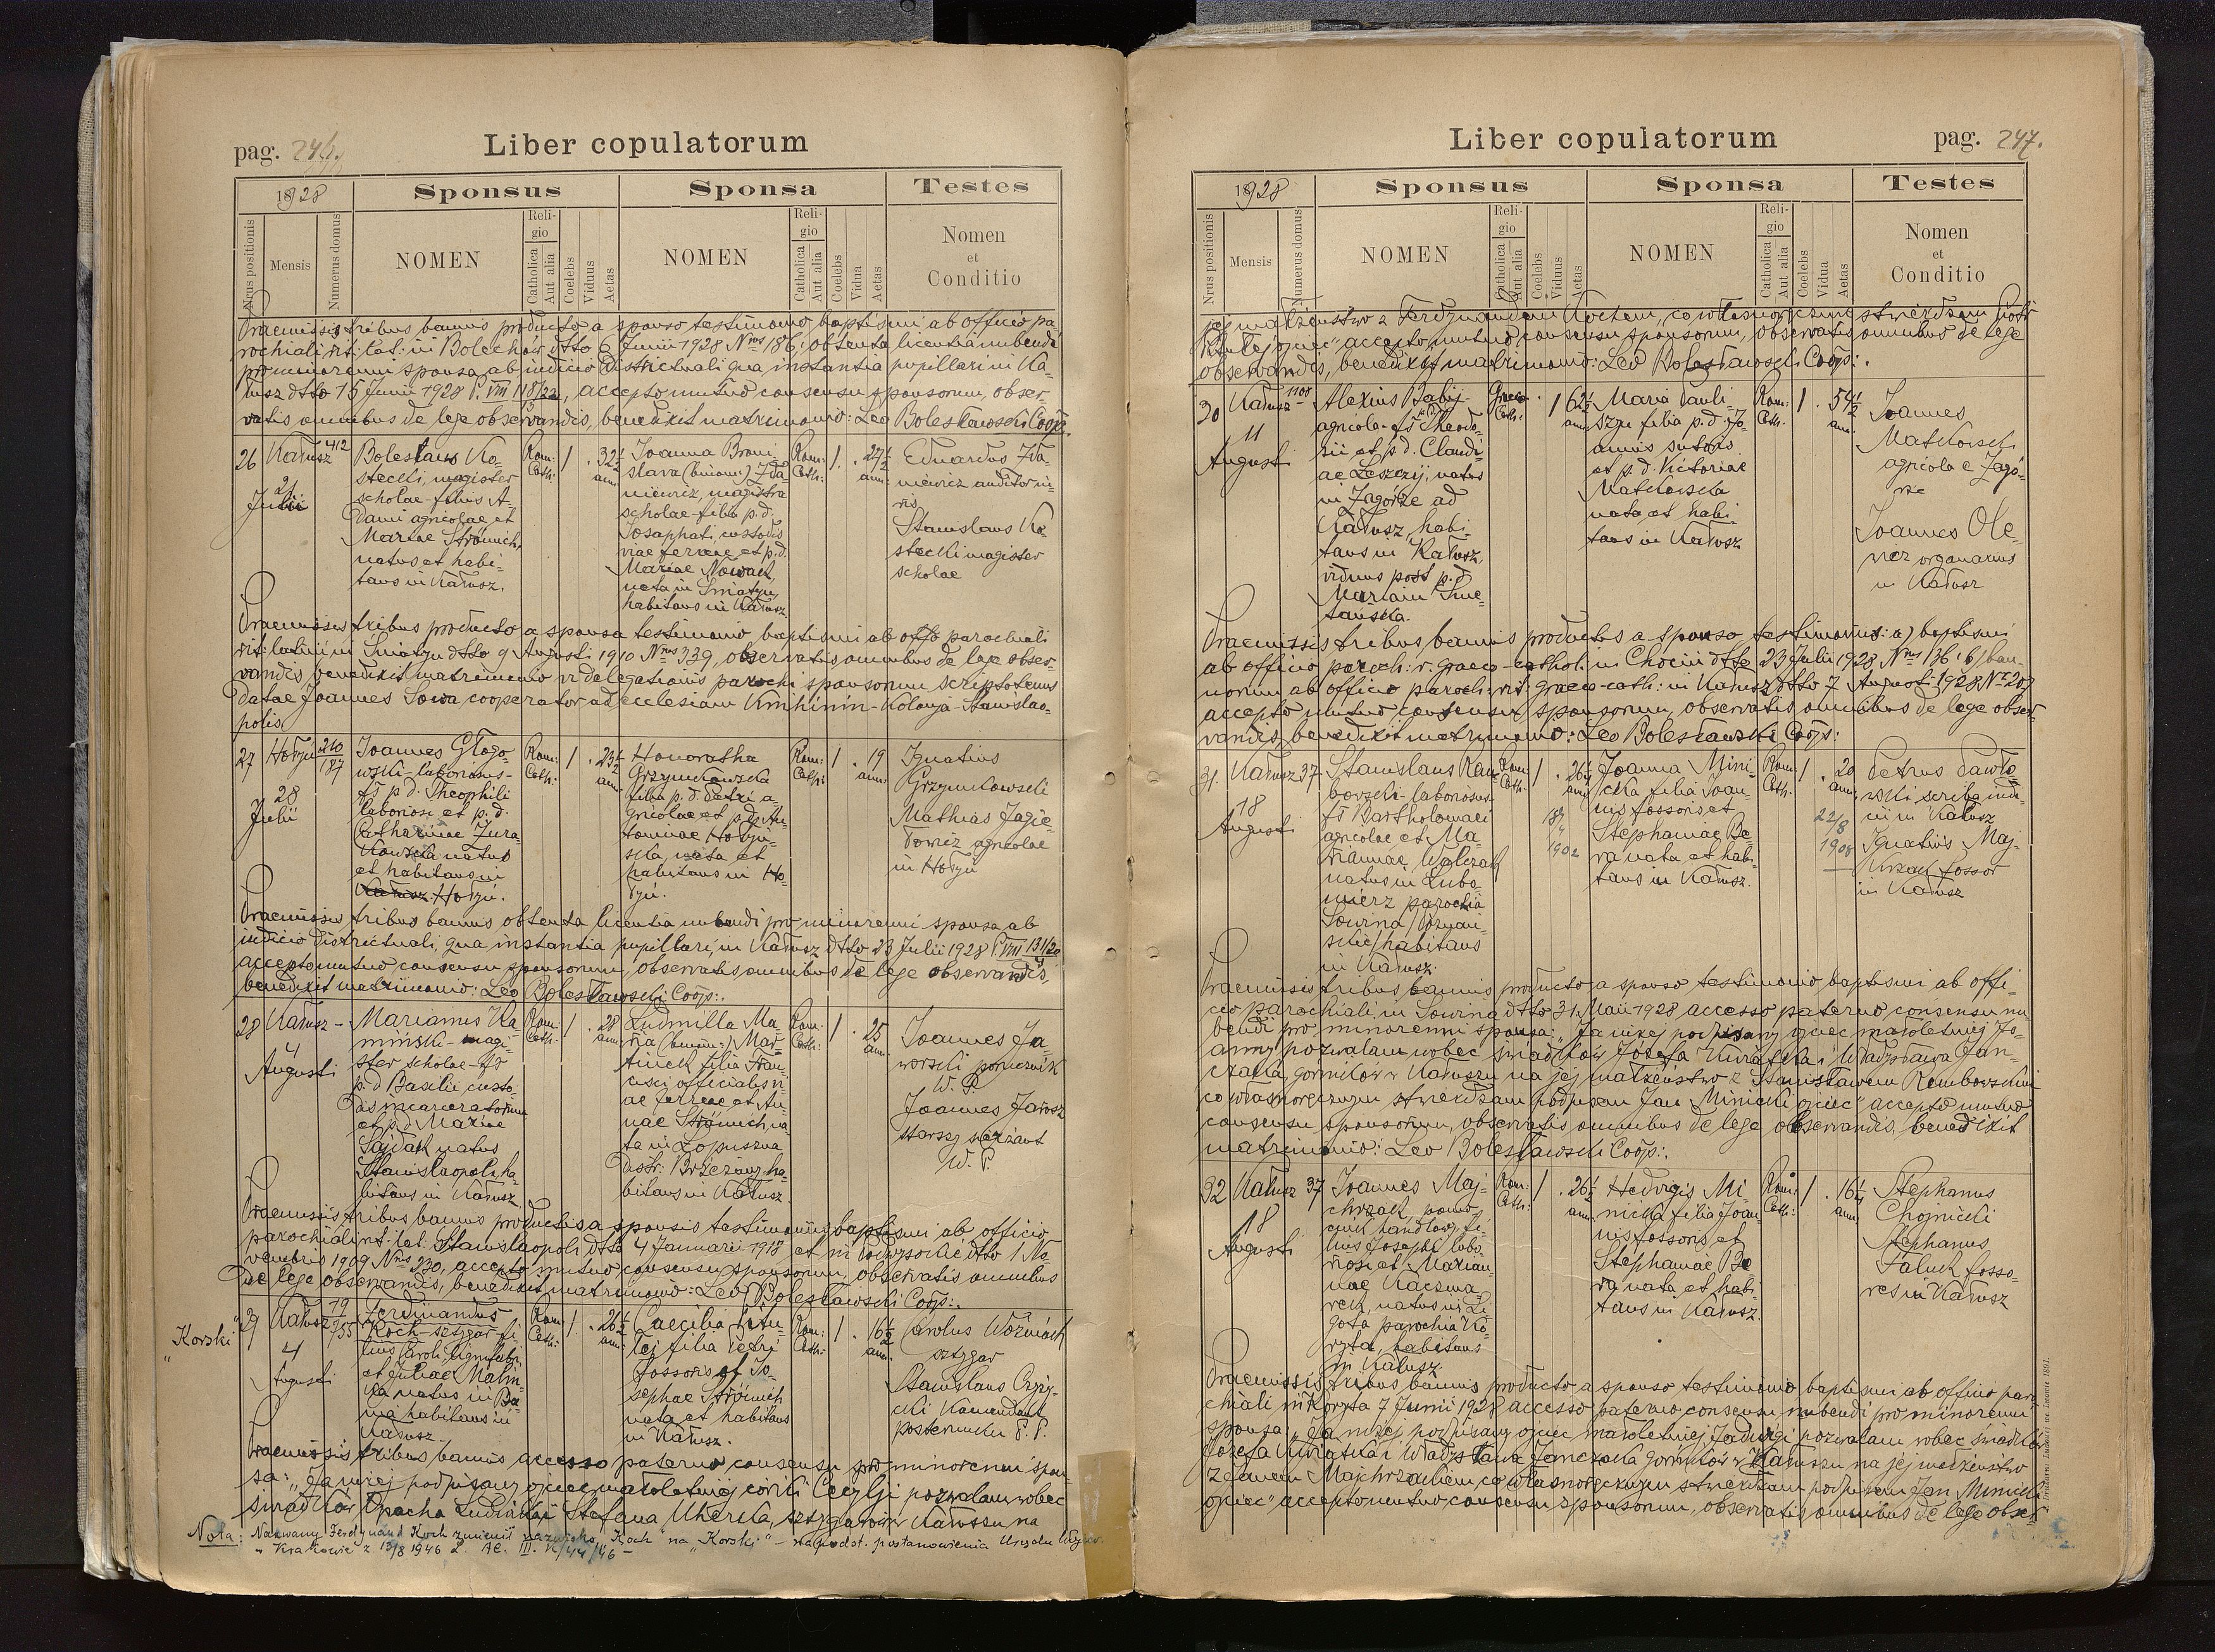 pag. 246.
Liber copulatorum
1928
Sponsus
Sponsa
Testes
Nrus positionis
Mensis
Numerus domus
NOMEN
Religio
Catholica
Aut alia
Coelebs
Viduus
Aetas
NOMEN
Religio
Catholica
Aut alia
Coelebs
Vidua
Aetas
Nomen
et
Conditio
Praemissis tribus bannis producto a sponso testimonio baptismi ab officio pa-
rochiali rit: lat: in Bolechów dtto 6 Junii 1928 Nrus 186, obtenta licentia nubendi
pro minorenni sponsa ab iudicio districtuali qua instantia pupillari in Ka-
łusz dtto 15 Junii 1928 P. VIII 118/22, accepto mutuo consensu sponsorum, obser-
vatis omnibus de lege observandis, benedixit matrimonio: Leo Bolesławski Coop:
26
21
Julii
Kałusz 412
Boleslaus Ko-
stecki, magister
scholae - filius A-
dami agricolae et
Mariae Strömich,
natus et habi-
tans in Kałusz.
Rom:
Cath:
1
32½
ann:
Joanna Broni-
slava (binom:) Zda-
niewicz, magistra
scholae - filia p. d.
Josaphati, custodis
viae ferreae et p. d.
Mariae Nowak,
nata in Śniatyn,
habitans in Kałusz
Rom:
Cath:
1
27½
ann:
Eduardus Zda-
niewicz auditor iu-
ris
Stanislaus Ko-
stecki magister
scholae
Praemissis tribus producto a sponsa testimonio baptismi ab offo parochiali
rit: latini in Śniatyn dtto 9 Augusti 1910 Nrus 339, observatis omnibus de lege obser-
vandis benedixit matrimonio vi delegationis parochi sponsorum scriptotenus
datae Joannes Sowa cooperator ad ecclesiam Knihinin-Kolonja-Stanislao-
polis.
27
28
Julii
Hołyń 210
187
Joannes Głogo-
wski - laboriosus -
fs p. d. Theophili
laboriosi et p. d.
Catharinae Żura-
kowska natus
et habitans in
Kałusz. Hołyń.
Rom:
Cath:
1
23½
ann:
Honoratha
Grzymkowska
filia p. d. Petri a-
gricolae et p. d. An-
toninae Hołyń-
ska, nata et
habitans in Ho-
łyń.
Rom:
Cath:
1
19
ann:
Ignatius
Grzymkowski
Mathias Jagie-
łowicz agricolae
in Hołyń
Praemissis tribus bannis obtenta licentia nubendi pro minorenni sponsa ab
iudicio districtuali, qua instantia pupillari, in Kałusz dtto 23 Julii 1928 P. VIII 131/20
accepto mutuo consensu sponsorum, observatis omnibus de lege observandis,
benedixit matrimonio: Leo Bolesławski Coop:.
28
4
Augusti
Kałusz -
Marianus Ka-
miński - magi-
ster scholae - fs
p. d. Basilii custo-
dis incarceratorum
et p. d. Mariae
Sajdak natus
Stanislaopoli, ha-
bitans in Kałusz
Rom:
Cath:
1
28
ann:
Ludmilla Ma-
ria (binom:) Mar-
tinek filia Fran-
cisci officialis vi-
ae ferreae et An-
nae Strömich, na-
ta in Łopuszna
distr: Brzeżany ha-
bitans in Kałusz.
Rom:
Cath:
1
25
ann:
Joannes Ja-
worski porucznik
W. P.
Joannes Jarosz
starszy sierżant
W. P.
Praemissis tribus bannis productis a sponsis testimoniis baptismi ab officio
parochiali rit: lat. Stanislaopoli dtto 4 Januarii 1918 et in Podwysokie dtto 1 No-
vembris 1909 Nrus 230, accepto mutuo consensu sponsorum, observatis omnibus
de lege observandis, benedixit matrimonio: Leo Bolesławski Coop:.
"Korski"
29
4
Augusti
Kałusz 79
755
Ferdinandus
Koch - sztygar - fi-
lius Caroli, lignifabri
et Juliae Malin-
ka natus in Ba-
nia habitans in
Kałusz.
Rom:
Cath:
1
26½
ann:
Caecilia Knu-
tej filia Petri
fossoris et Jo-
sephae Strömich
nata et habitans
in Kałusz.
Rom:
Cath:
1
16½
ann:
Carolus Woźniak
sztygar
Stanislaus Czyży-
cki Komendant
posterunku P. P.
Praemissis tribus bannis accesso paterno consensu pro minorenni spon-
sa: "Ja niżej podpisany ojciec małoletniej córki Cecylji pozwalam wobec
świadków Stefana Uherka, sztygarów w Kałuszu, na
Nota: Nazwany Ferdynand Koch zmienił nazwisko "Koch" na "Korski" - na podst. postanowienia Urzędu Wojew.
w Krakowie z 13/8 1946 L. AC. III. K/44/46 -
Liber copulatorum
pag. 247.
1928
Sponsus
Sponsa
Testes
Nrus positionis
Mensis
Numerus domus
NOMEN
Religio
Catholica
Aut alia
Coelebs
Viduus
Aetas
NOMEN
Religio
Catholica
Aut alia
Coelebs
Vidua
Aetas
Nomen
et
Conditio
jej małżeństwo z Ferdynandem Kochem, co własnoręcznie stwierdzam Piotr
Knutej ojciec" accepto mutuo consensu sponsorum, observatis omnibus de lege
observandis, benedixit matrimonio: Leo Bolesławski Coop:.
30
11
Augusti
Kałusz 1108
Alexius Babij -
agricola - fs Theodo-
sii et p. d. Claudi-
ae Leszczij, natus
in Zagórze ad
Kałusz, habi-
tans in Kałusz,
viduus post p. d.
Mariam Sme-
tańska.
Graeco
Cath:
1
62½
ann:
Maria Pauli-
szyn filia p. d. Jo-
annis sutoris
et p. d. Victoriae
Matkowska
nata et habi-
tans in Kałusz
Rom:
Cath:
1
54½
ann:
Joannes
Matkowski
agricola e Zagó-
rze
Joannes Ole-
wicz organarius
in Kałusz
Praemissis tribus bannis productis a sponso testimoniis: a) baptismi
ab officio paroch: r. graeco-cathol: in Chocin dtto 23 Julii 1928 Nrus 136 b) ban-
norum ab officio paroch: rit: graeco-cath: in Kałusz dtto 7 Augusti 1928 No 209
accepto mutuo consensu sponsorum, observatis omnibus de lege obser-
vandis, benedixit matrimonio: Leo Bolesławski Coop:
31.
18
Augusti
Kałusz 37
Stanislaus Ram-
bowski - laboriosus -
fs Bartholomaei
agricolae et Ma-
riannae Walczak
natus in Lubo-
mierz parochia
Sowina /Poznań-
skie/ habitans
in Kałusz.
Rom:
Cath:
1
26¼
ann:
1902
Joanna Mini-
cka filia Joan-
nis fossoris et
Stephaniae Be-
ra nata et habi-
tans in Kałusz.
Rom:
Cath:
1
20
ann:
22/8
1908
Petrus Pawło-
wski scriba iudi-
cii in Kałusz
Ignatius Maj-
chrzak fossor
in Kałusz
Praemissis tribus bannis producto a sponso testimonio baptismi ab offi-
cio parochiali in Sowina dtto 31 Maii 1928 accesso paterno consensu nu-
bendi pro minorenni sponsa: "Ja niżej podpisany ojciec małoletniej Jo-
anny pozwalam wobec świadków Józefa Kwiatka i Władysława Jan-
czaka, górników w Kałuszu na jej małżeństwo z Stanisławem Rembowskim
co własnoręcznym stwierdzam podpisem Jan Minicki ojciec" accepto mutuo
consensu sponsorum, observatis omnibus de lege observandis, benedixit
matrimonio: Leo Bolesławski Coop:.
32
18
Augusti
Kałusz 37
Joannes Maj-
chrzak, pomo-
cnik handlowy fi-
lius Josephi labo-
riosi et Marian-
nae Kaczma-
rek, natus in Li-
gota parochia Ko-
ryta, habitans
in Kałusz.
Rom:
Cath:
1
26½
ann:
Hedvigis Mi-
nicka filia Joan-
nis fossoris et
Stephaniae Be-
ra nata et habi-
tans in Kałusz.
Rom:
Cath:
1
16¼
ann:
Stephanus
Chojnicki
Stephanus
Faluch fosso-
res in Kałusz
Praemissis tribus bannis producto a sponso testimonio baptismi ab officio paro-
chiali in Koryta 7 Junii 1928 accesso paterno consensu nubendi pro minorenni
sponsa "Ja niżej podpisany ojciec małoletniej Jadwigi pozwalam wobec świadków
Józefa Kwiatka i Władysława Janczaka górników w Kałuszu na jej małżeństwo
z Janem Majchrzakiem co własnoręcznym stwierdzam podpisem Jan Minicki
ojciec" accepto mutuo consensu sponsorum, observatis omnibus de lege obser-